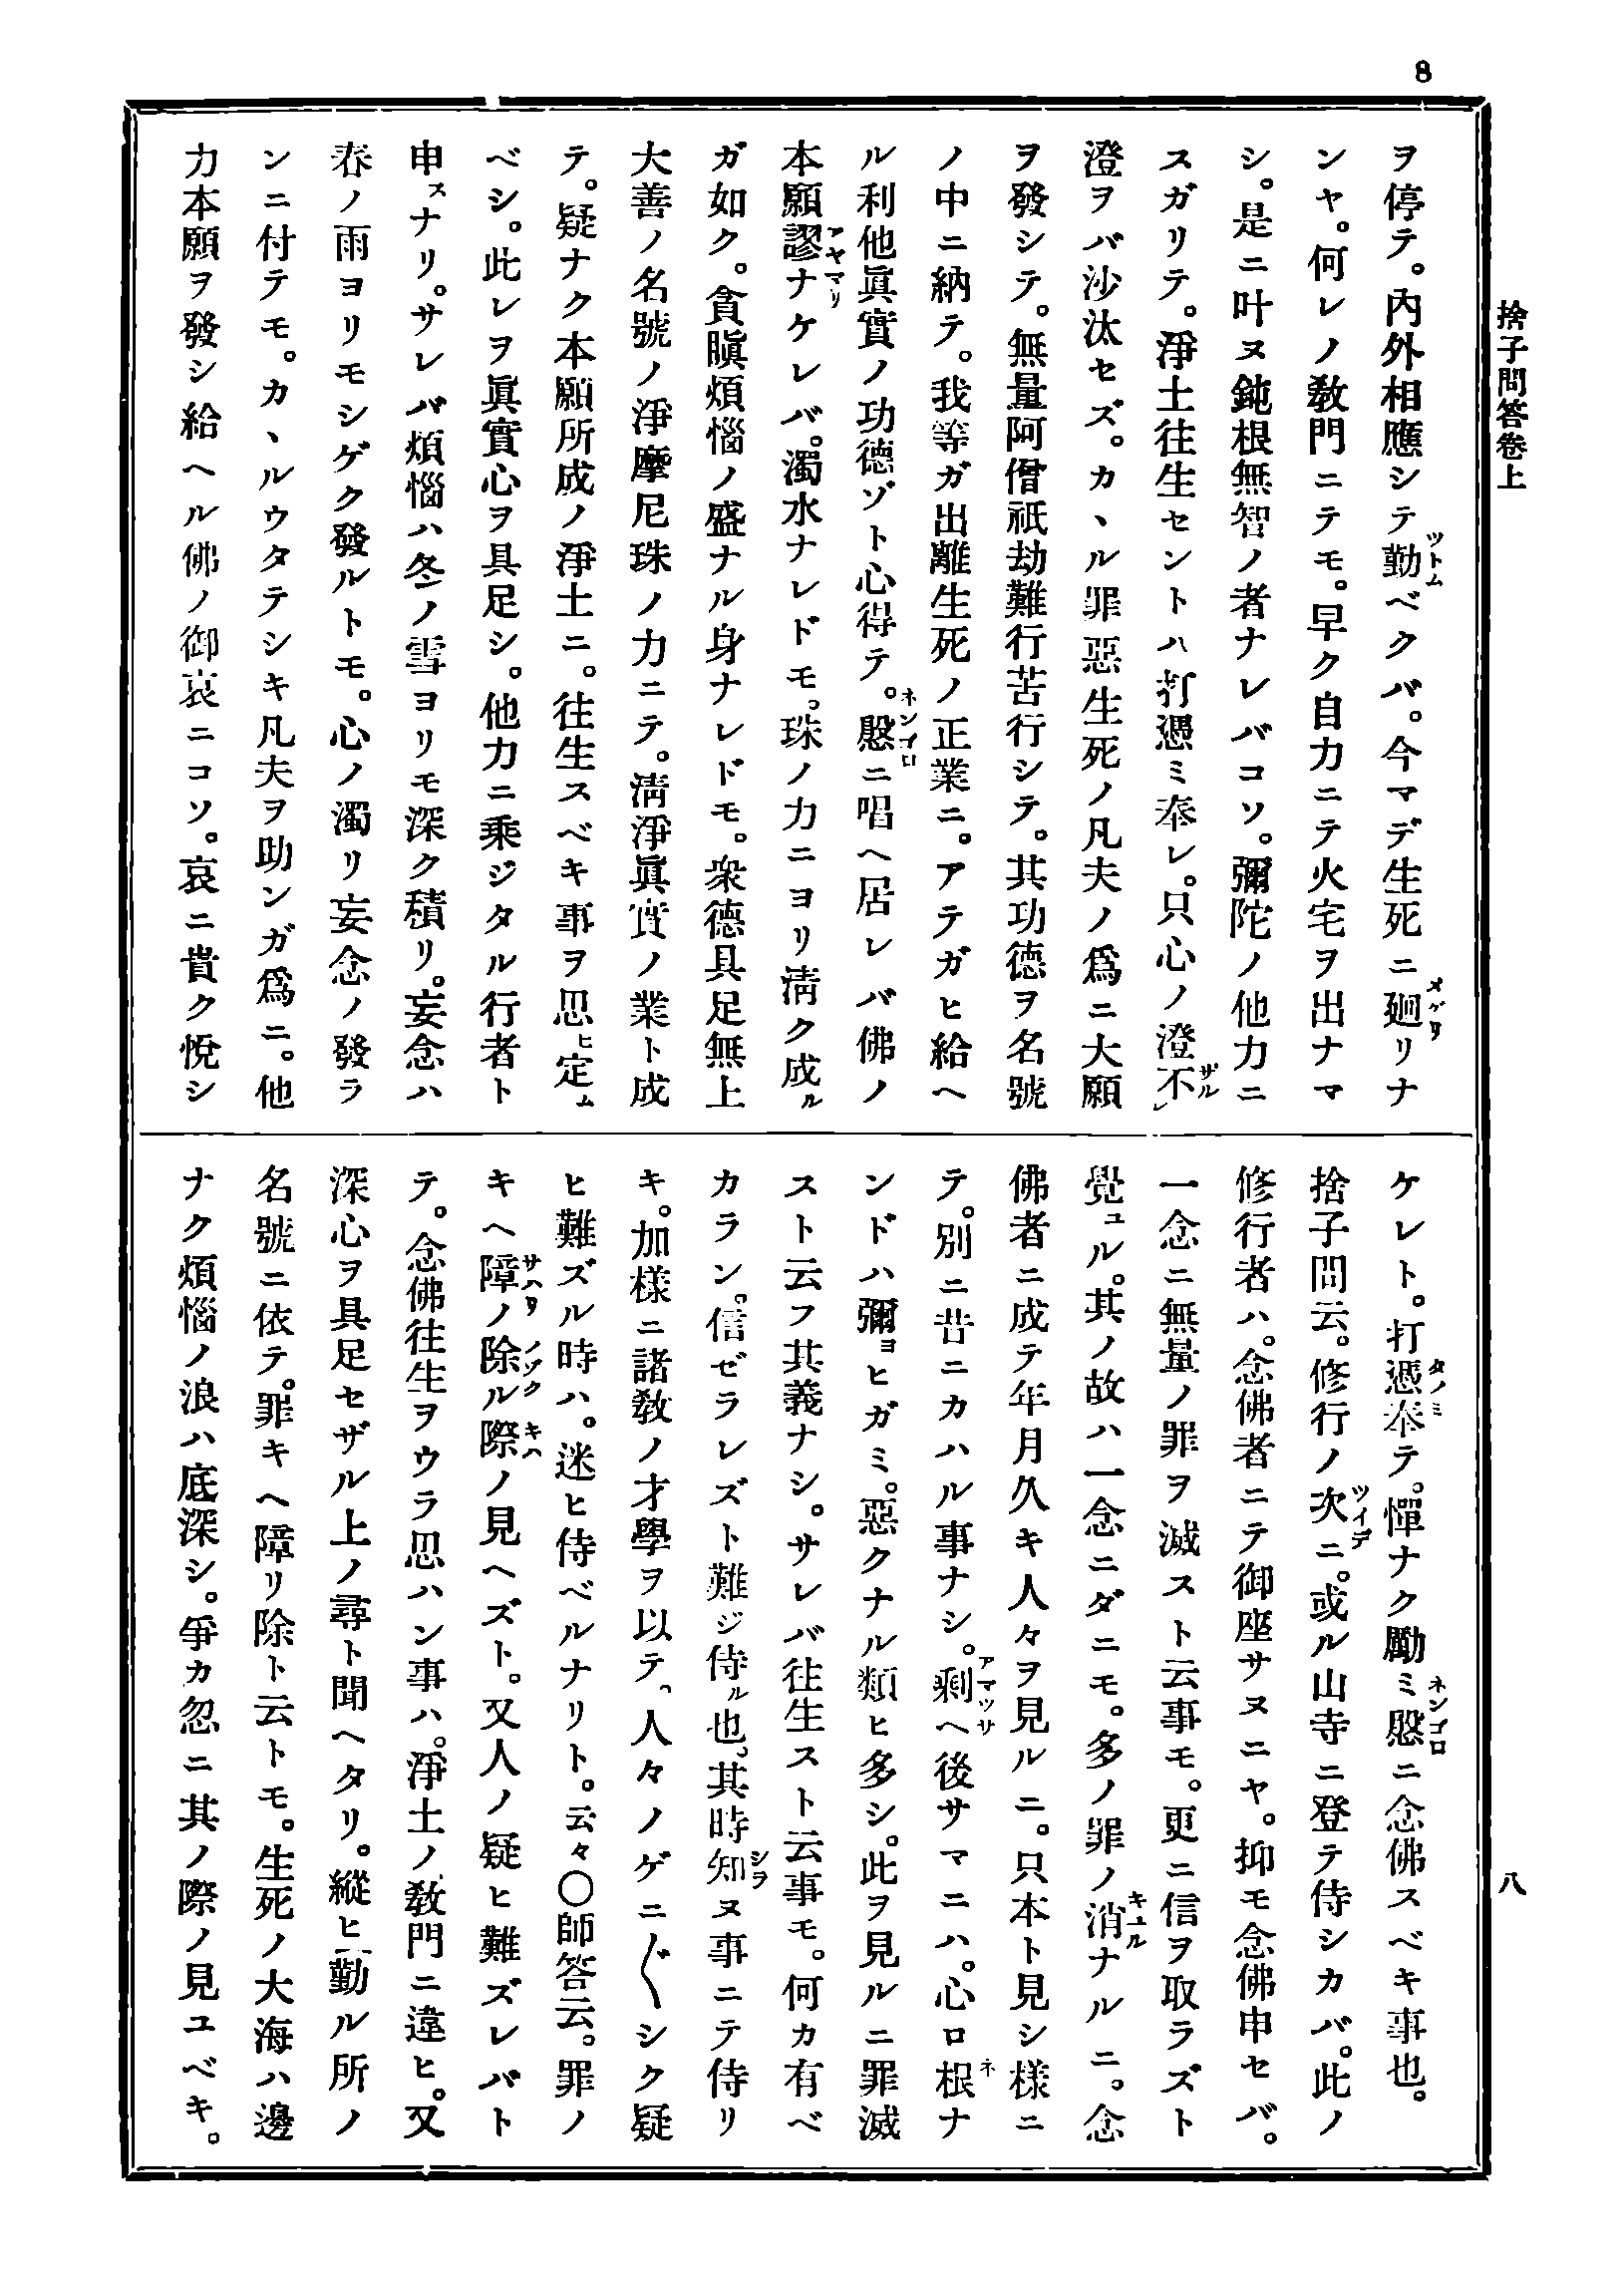 8
捨子問答卷上
八
ヲ停テ。內外相應シテ勤ベクバ。今マデ生死ニ廻リナ
ンヤ。何レノ敎門ニテモ。早ク自力ニテ火宅ヲ出ナマ
シ。是ニ叶ヌ鈍根無智ノ者ナレバコソ。彌陀ノ他力ニ
スガリテ。淨土往生セントハ打憑ミ奉レ。只心ノ澄不レ
澄ヲバ沙汰セズ。カヽル罪惡生死ノ凡夫ノ爲ニ大願
ヲ發シテ。無量阿僧祇劫難行苦行シテ。其功德ヲ名號
ノ中ニ納テ。我等ガ出離生死ノ正業ニ。アテガヒ給ヘ
ル利他眞實ノ功德ゾト心得テ。慇ニ唱ヘ居レバ佛ノ
本願謬ナケレバ。濁水ナレドモ。珠ノ力ニヨリ淸ク成ル
ガ如ク。貪瞋煩惱ノ盛ナル身ナレドモ。衆德具足無上
大善ノ名號ノ淨摩尼珠ノ力ニテ。淸淨眞實ノ業ト成
テ。疑ナク本願所成ノ淨土ニ。往生スベキ事ヲ思ヒ定ム
ベシ。此レヲ眞實心ヲ具足シ。他力ニ乘ジタル行者ト
申スナリ。サレバ煩惱ハ冬ノ雪ヨリモ深ク積リ。妄念ハ
春ノ雨ヨリモシゲク發ルトモ。心ノ濁リ妄念ノ發ラ
ンニ付テモ。カヽルウタテシキ凡夫ヲ助ンガ爲ニ。他
力本願ヲ發シ給ヘル佛ノ御哀ニコソ。哀ニ貴ク悅シ
ケレト。打憑奉テ。憚ナク勵ミ慇ニ念佛スベキ事也。
捨子問云。修行ノ次ニ。或ル山寺ニ登テ侍シカバ。此ノ
修行者ハ。念佛者ニテ御座サヌニヤ。抑モ念佛申セバ。
一念ニ無量ノ罪ヲ滅スト云事モ。更ニ信ヲ取ラズト
覺ユル。其ノ故ハ一念ニダニモ。多ノ罪ノ消ナルニ。念
佛者ニ成テ年月久キ人々ヲ見ルニ。只本ト見シ樣ニ
テ。別ニ昔ニカハル事ナシ。剩ヘ後サマニハ。心ロ根ナ
ンドハ彌ヨヒガミ。惡クナル類ヒ多シ。此ヲ見ルニ罪滅
スト云フ其義ナシ。サレバ往生スト云事モ。何カ有ベ
カラン。信ゼラレズト難ジ侍ル也。其時知ヌ事ニテ侍リ
キ。加樣ニ諸敎ノ才學ヲ以テ、人々ノゲニ〲シク疑
ヒ難ズル時ハ。迷ヒ侍ベルナリト。云々〇師答云。罪ノ
キヘ障ノ除ル際ノ見ヘズト。又人ノ疑ヒ難ズレバト
テ。念佛往生ヲウラ思ハン事ハ。淨土ノ敎門ニ違ヒ。又
深心ヲ具足セザル上ノ尋ト聞ヘタリ。縱ヒ勤ル所ノ
名號ニ依テ。罪キヘ障リ除ト云トモ。生死ノ大海ハ邊
ナク煩惱ノ浪ハ底深シ。爭カ忽ニ其ノ際ノ見ユベキ。